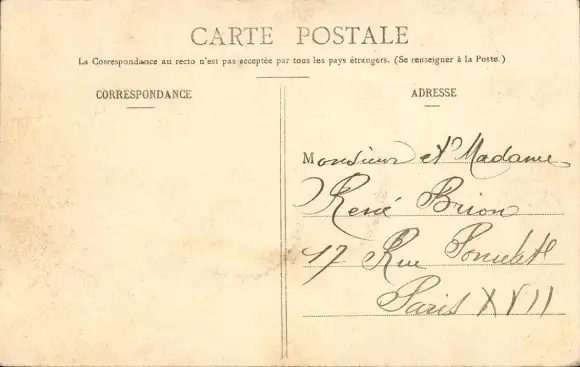 CARTE POSTALE
La Correspondance au recto n'est pas acceptée par tous les pays étrangers. (Se renseigner à la Poste.)
CORRESPONDANCE
ADRESSE
Monsieur et Madame
René Brion
17 Rue
Paris XVII